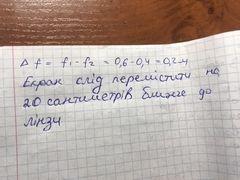 Δ f = f₁ - f₂ = 0,6 - 0,4 = 0,2 м
Екран слід перемістити на
20 сантиметрів ближче до
лінзи